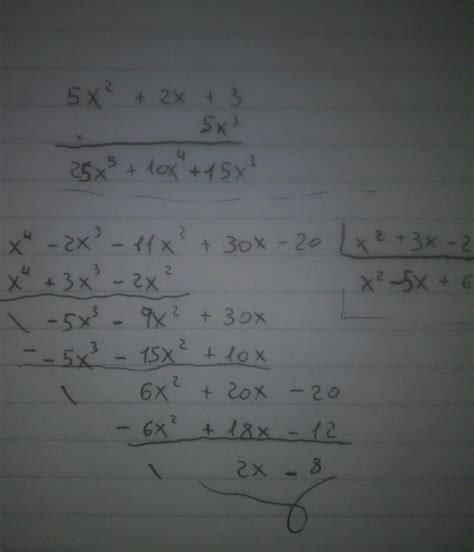 5x² + 2x + 3
× 5x³
25x⁵ + 10x⁴ + 15x³
x⁴ - 2x³ - 11x² + 30x - 20 | x² + 3x - 2
x⁴ + 3x³ - 2x² x² - 5x + 6
\ - 5x³ - 9x² + 30x
- - 5x³ - 15x² + 10x
\ 6x² + 20x - 20
- 6x² + 18x - 12
\ 2x - 8